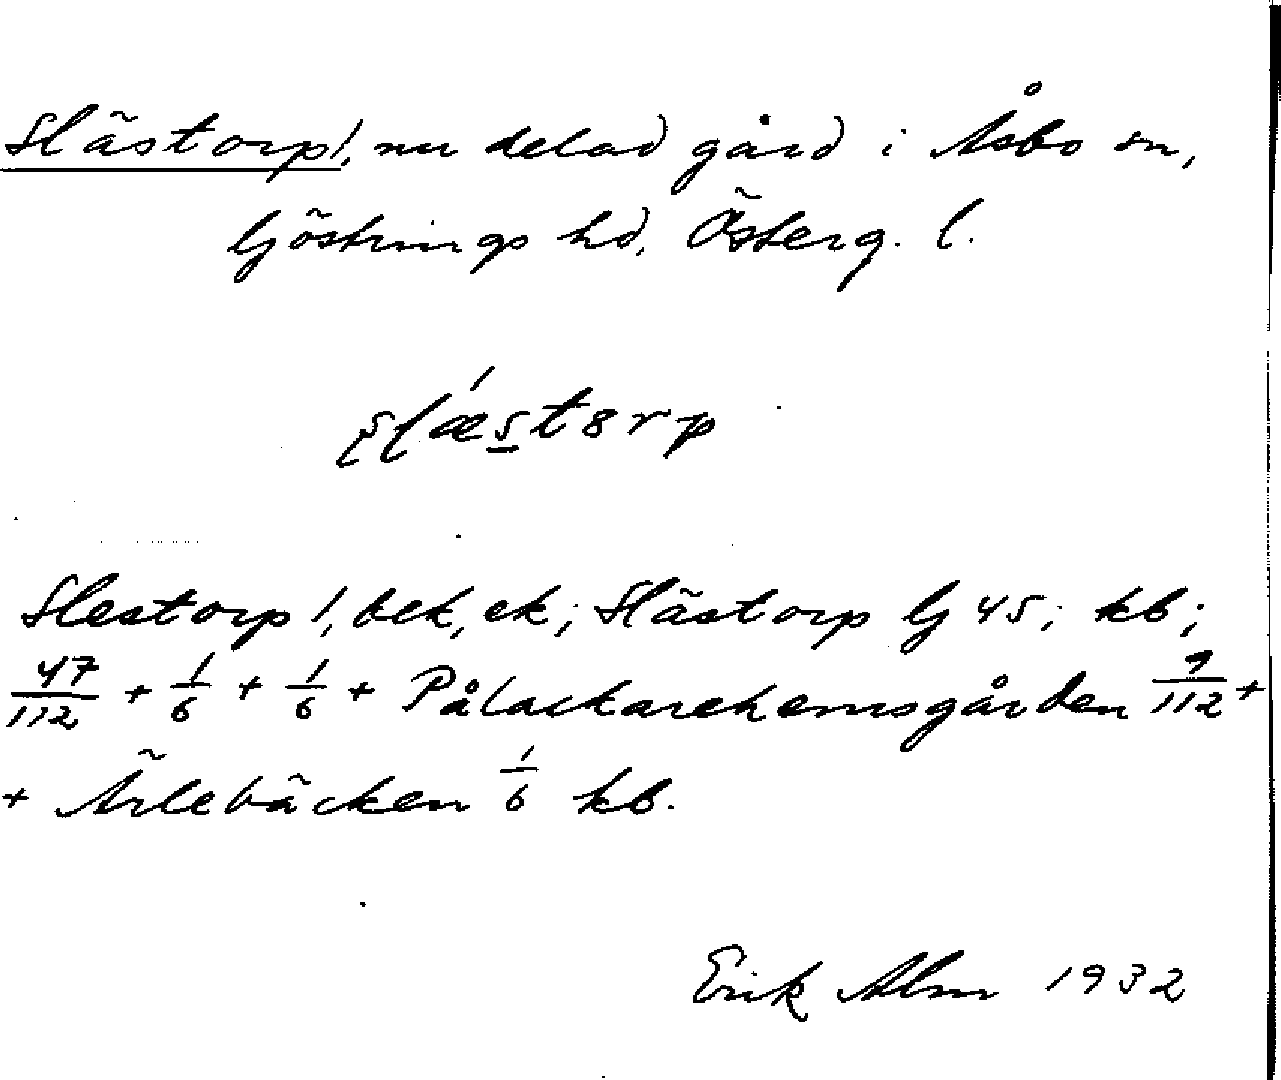 Slästorp!, nu delad gård i Åsbo sn,
Göstrings hd, Österg. l.
slǽstørp
Slestorp!, bek, ek; Slästorp Gj 45; kb;
47/112 + 1/6 + 1/6 + Pålackarehemsgården 9/112 +
+ Ärlebäcken 1/6 kb.
Erik Alm 1932